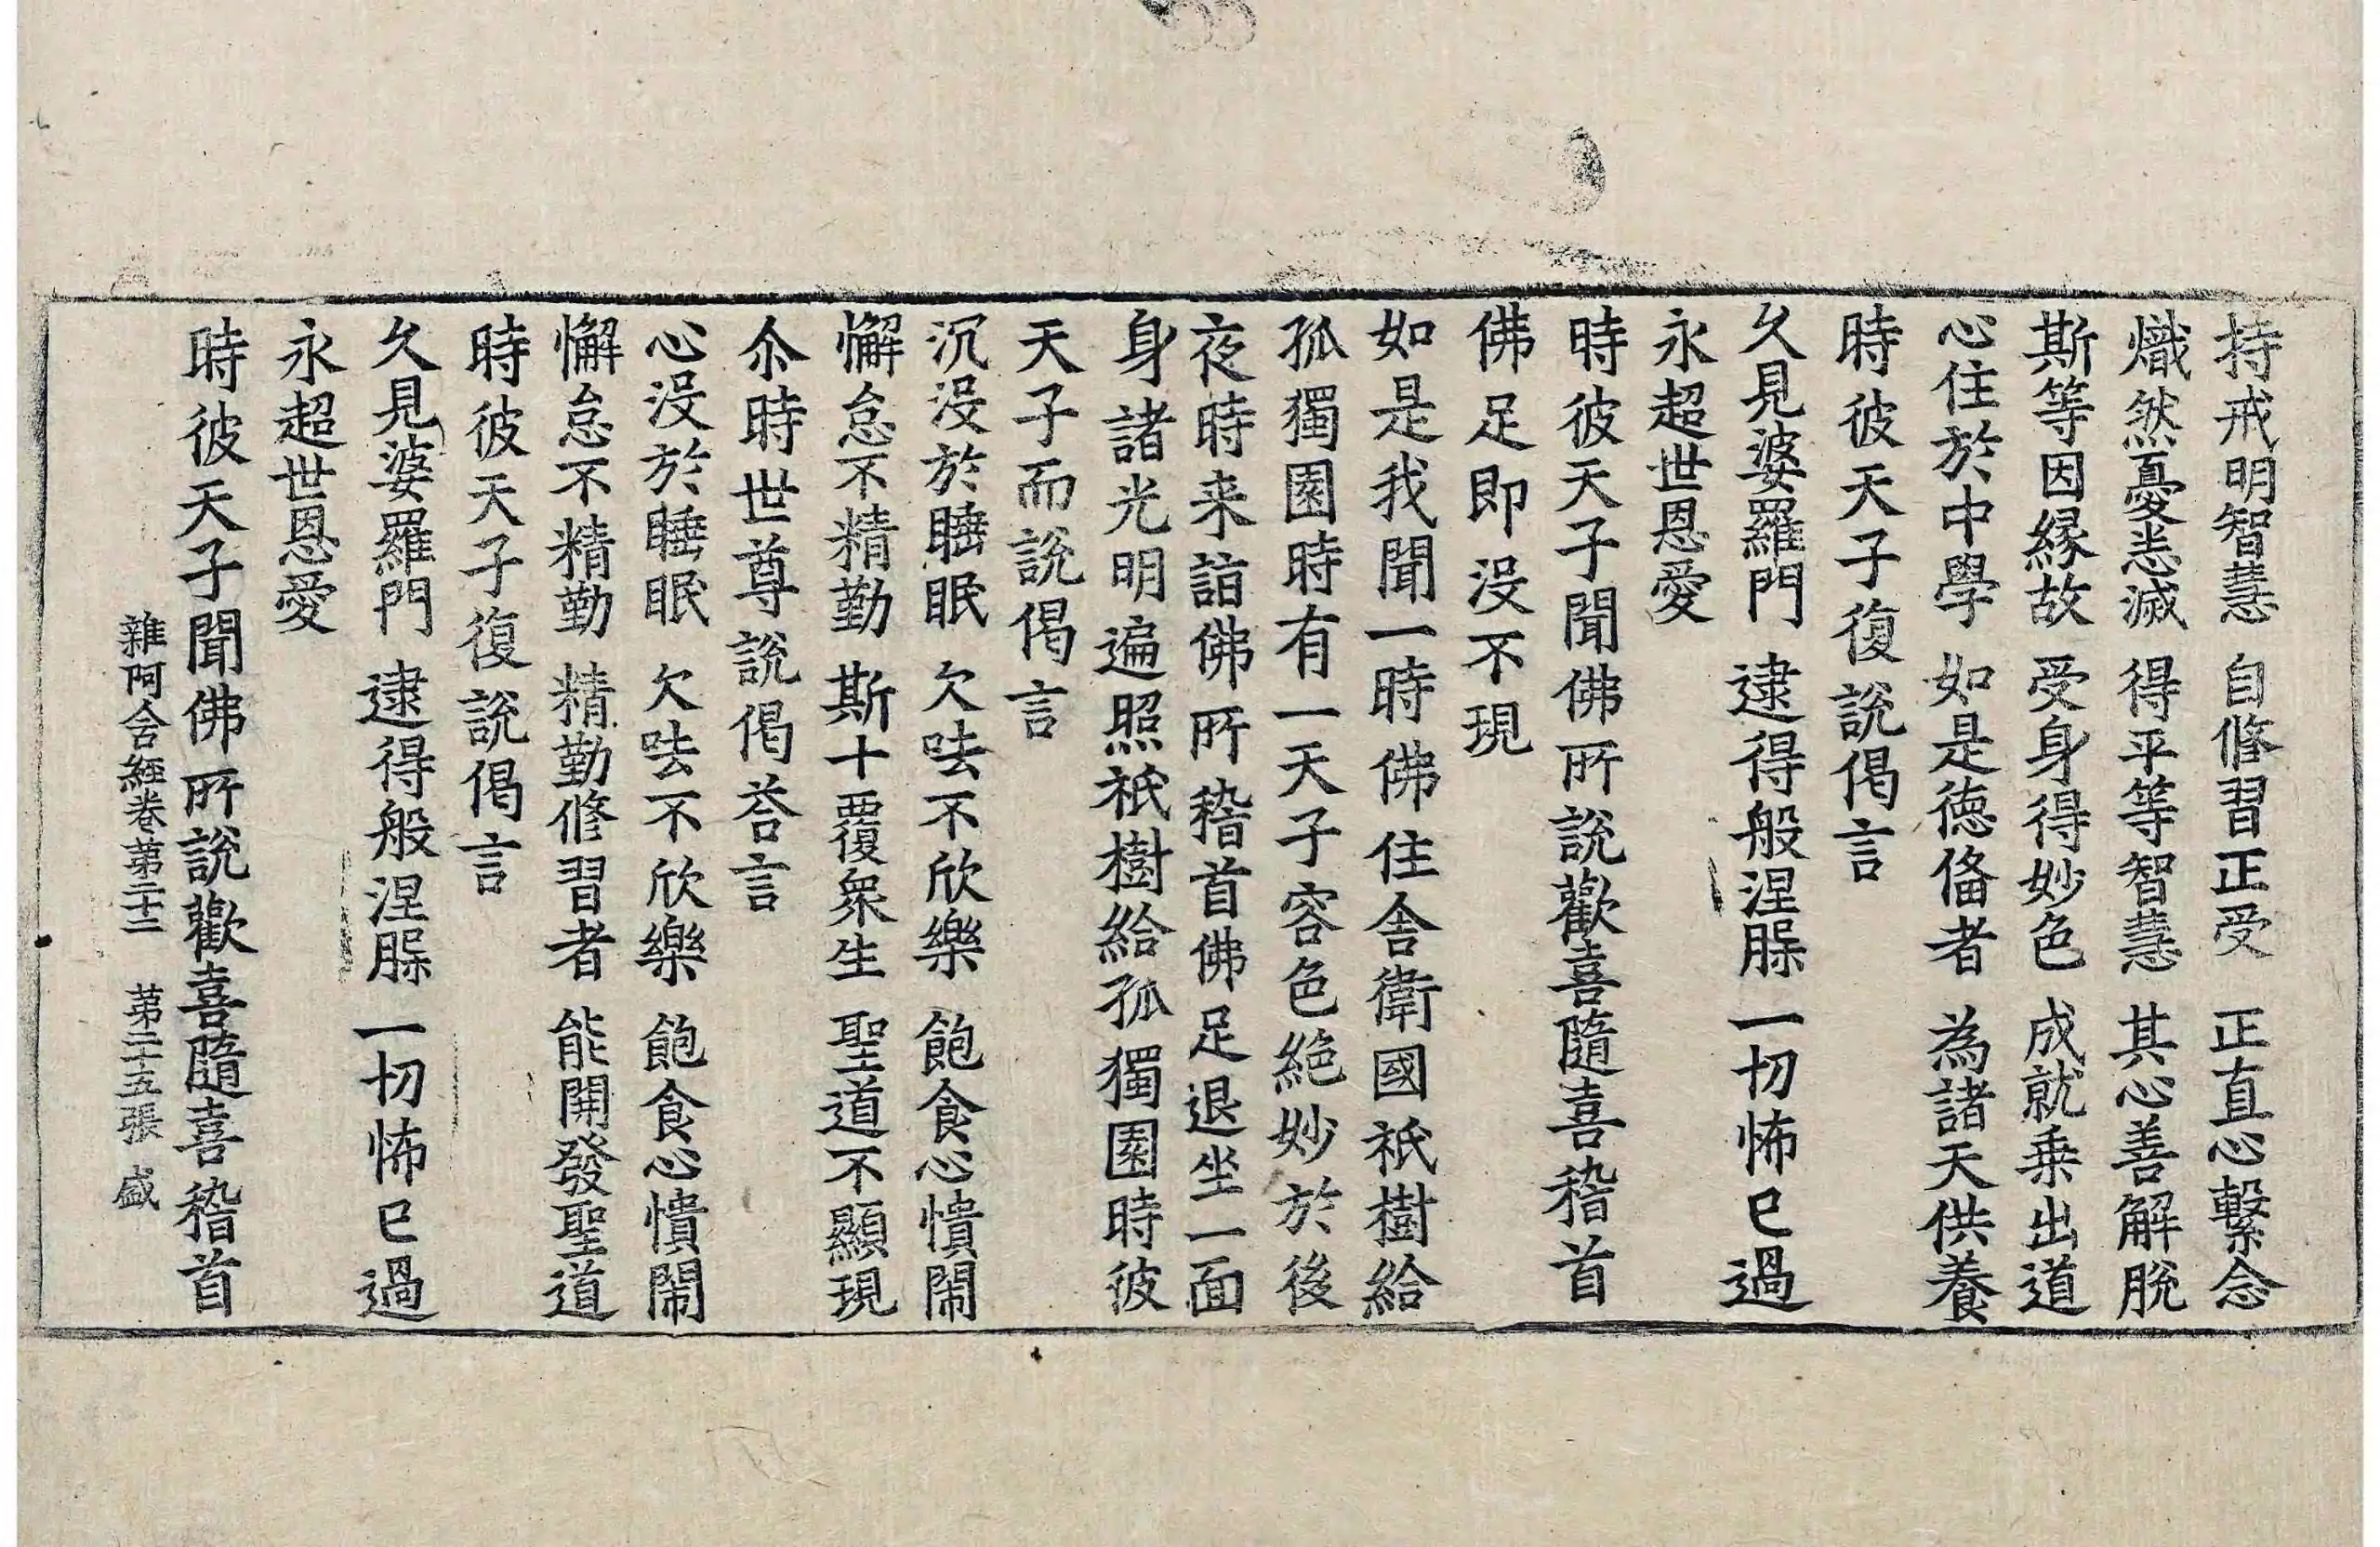 持戒明智慧 自脩習正受 正直心繫念
熾然憂恚滅 得平等智慧 其心善解脫
斯等因緣故 受身得妙色 成就乗出道
心住於中學 如是德俻者 為諸天供養
時彼天子復說偈言
久見婆羅門 逮得般涅槃 一切怖已過
永超世恩愛
時彼天子聞佛所說歡喜隨喜稽首
佛足即沒不現
如是我聞一時佛住舍衛國祇樹給
孤獨園時有一天子容色絶妙於後
夜時来詣佛所稽首佛足退坐一面
身諸光明遍照祇樹給孤獨園時彼
天子而說偈言
沉沒於睡眠 欠呿不欣樂 飽食心憒閙
懈怠不精勤 斯十覆衆生 聖道不顯現
尒時世尊說偈荅言
心沒於睡眠 欠呿不欣樂 飽食心憒閙
懈怠不精勤 精勤脩習者 能開發聖道
時彼天子復說偈言
久見婆羅門 逮得般涅槃 一切怖已過
永超世恩愛
時彼天子聞佛所說歡喜隨喜稽首
雜阿含經卷第二十二 第二十五張 盛